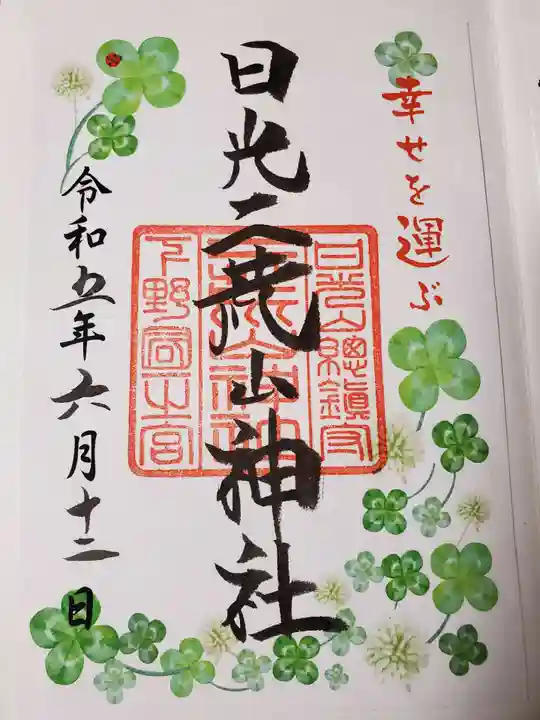 幸せを運ぶ
日光二荒山神社
日光山總鎮守
二荒山神社
下野國一之宮
令和五年六月十二日